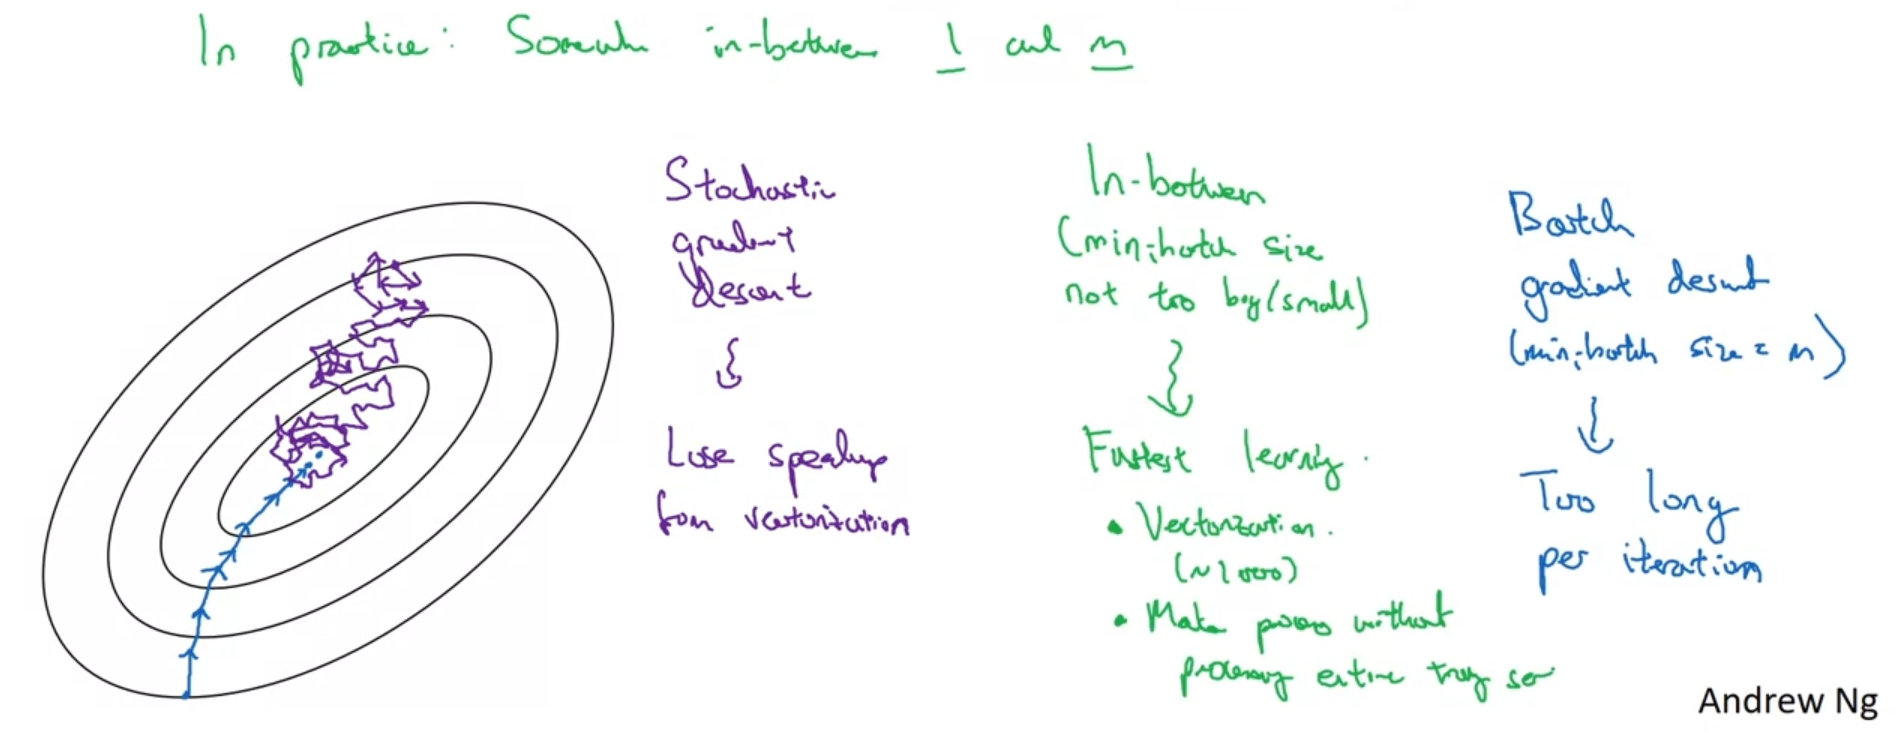 In practice: Somewh in-between 1 and m
Stochastic
gradient
descent
Lose speedup
from vectorization
In-between
(mini-batch size
not too big/small)
Fastest learning.
• Vectorization.
(~1000)
• Make progress without
processing entire training set
Batch
gradient descent
(mini-batch size = m)
Too long
per iteration
Andrew Ng